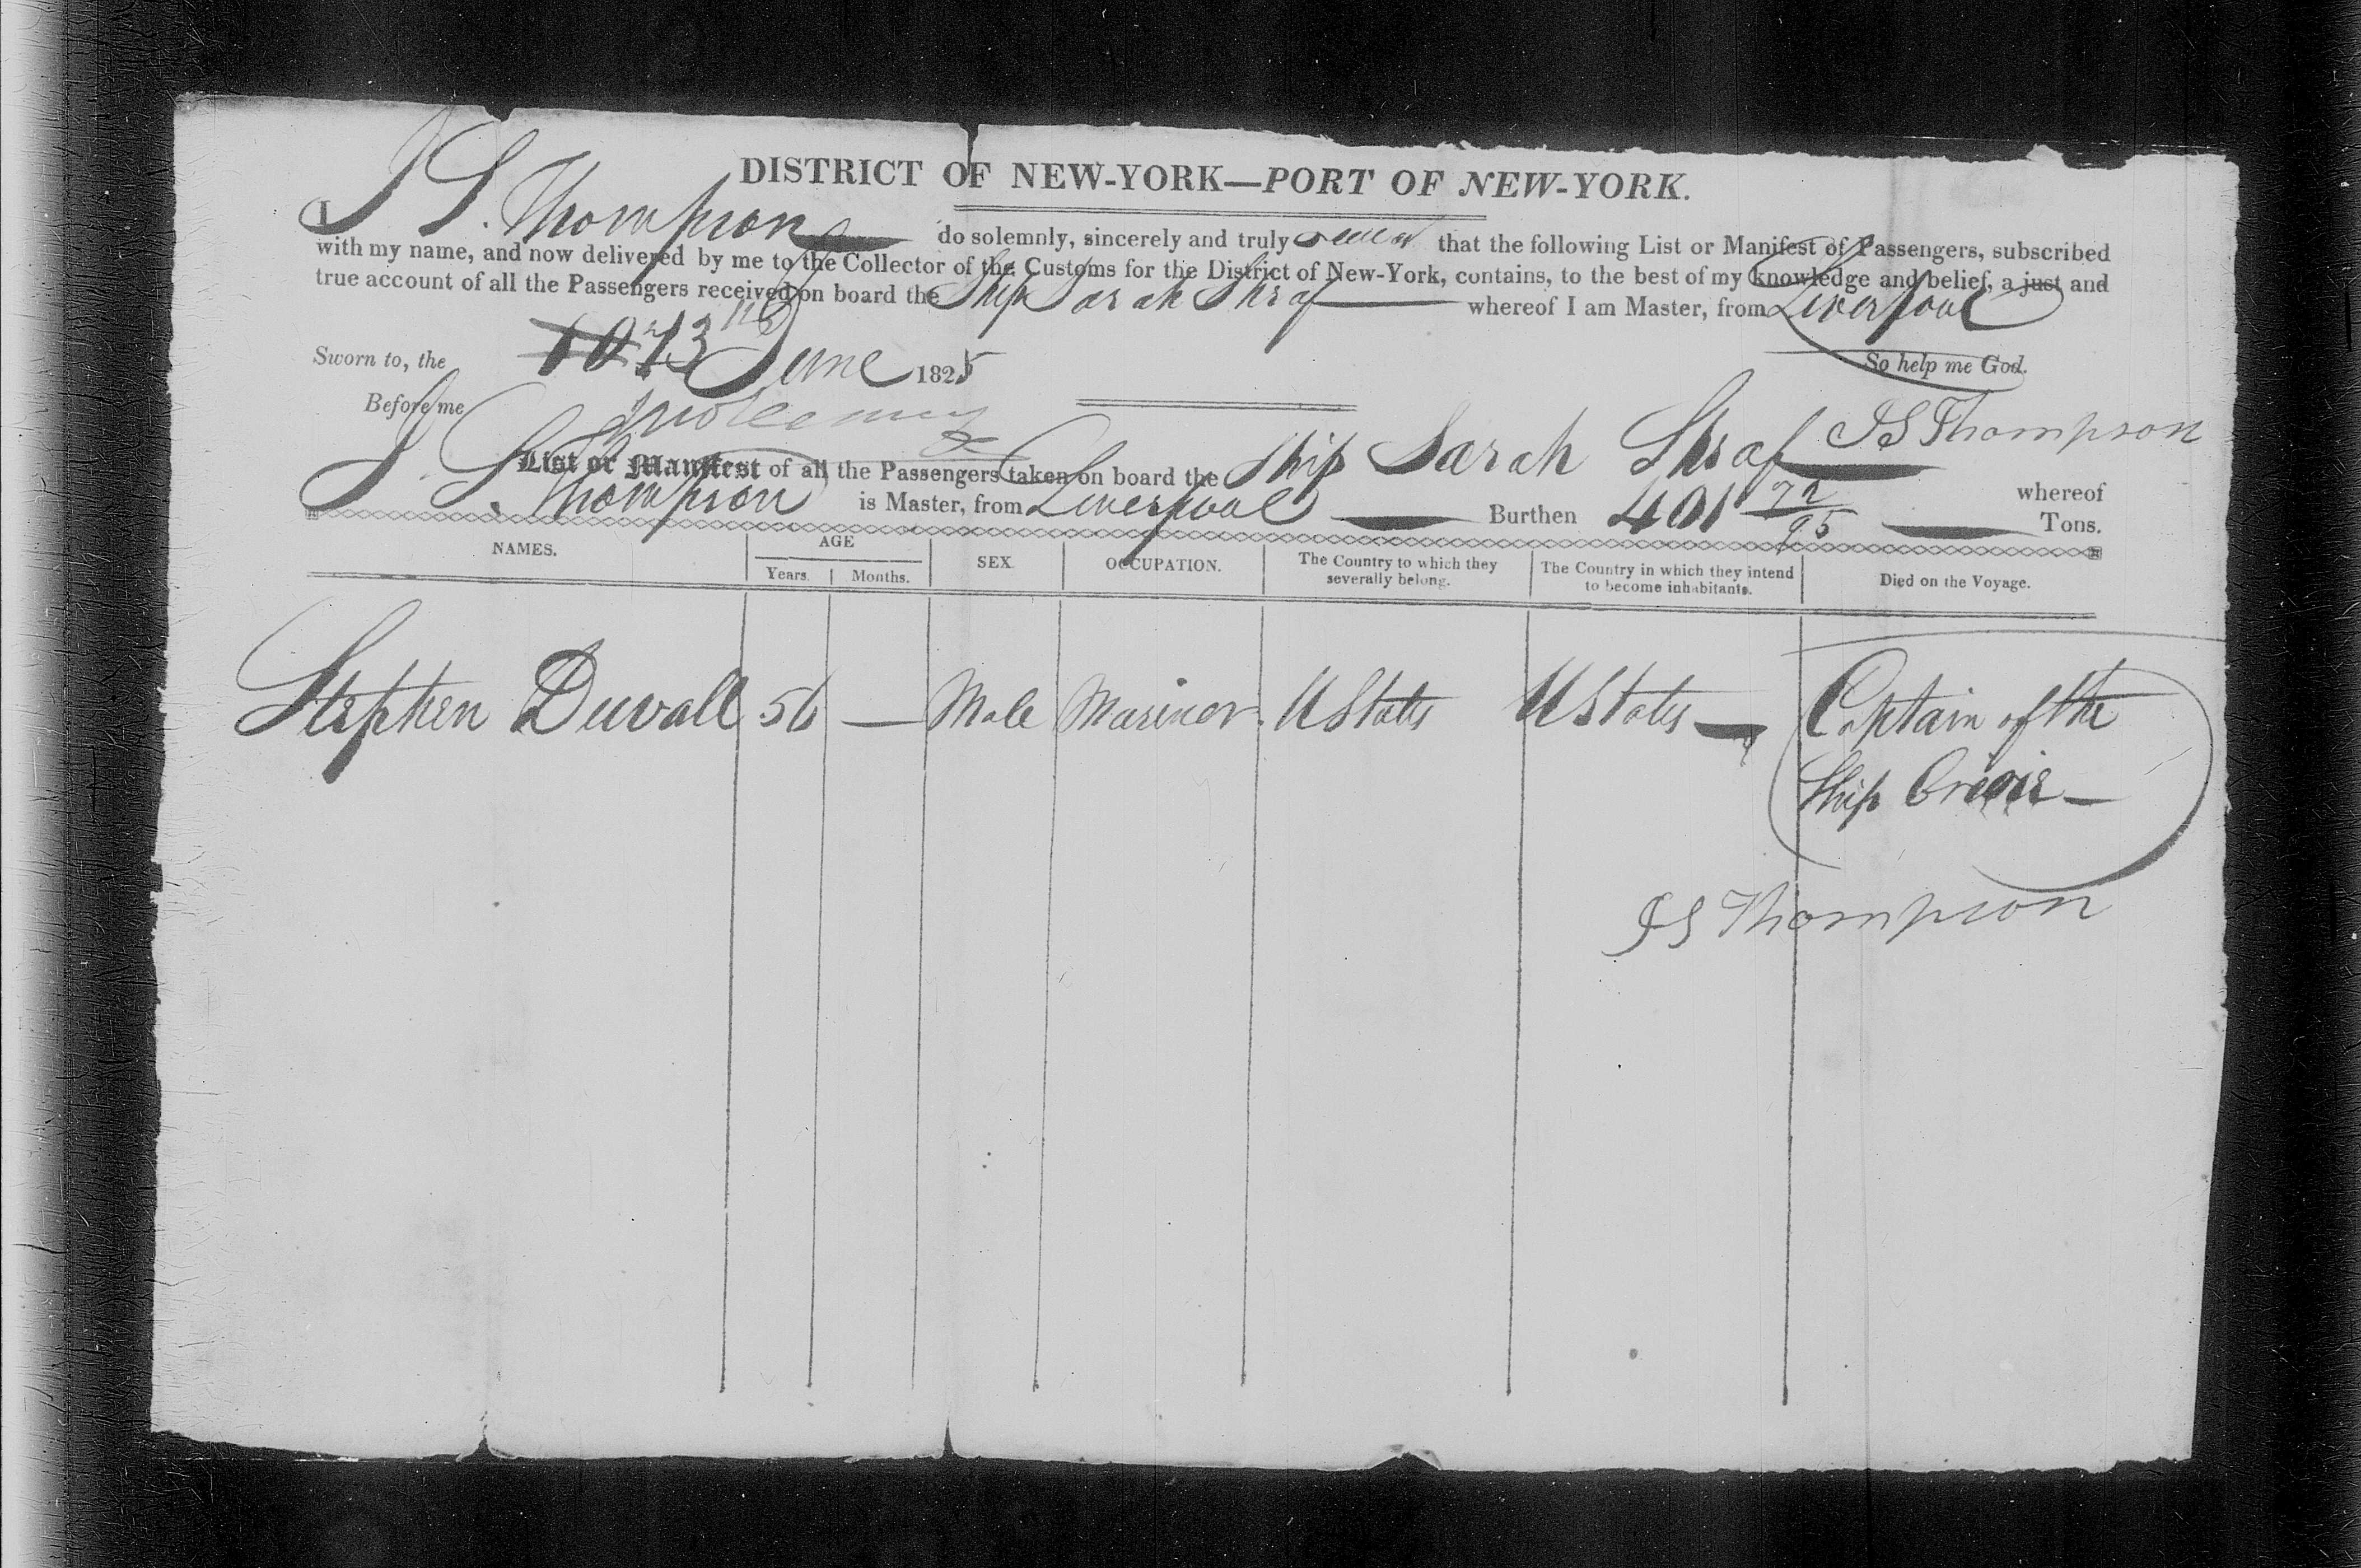 DISTRICT OF NEW-YORK—PORT OF NEW-YORK.
I J S. Thompson do solemnly, sincerely and truly swear that the following List or Manifest of Passengers, subscribed
with my name, and now delivered by me to the Collector of the Customs for the District of New-York, contains, to the best of my knowledge and belief, a just and
true account of all the Passengers received on board the Ship Sarah whereof I am Master, from Liverpool
So help me God.
Sworn to, the 13 June 1825
Before me
J S Thompson
List or Manifest of all the Passengers taken on board the Ship Sarah whereof
J. S. Thompson is Master, from Liverpool Burthen 401 72/95 Tons.
NAMES. AGE SEX. OCCUPATION. The Country to which they severally belong. The Country in which they intend to become inhabitants. Died on the Voyage.
Years. Months.
Stephen Duvall 56 — Male Mariner. UStates UStates — Captain of the
Ship
JS Thompson